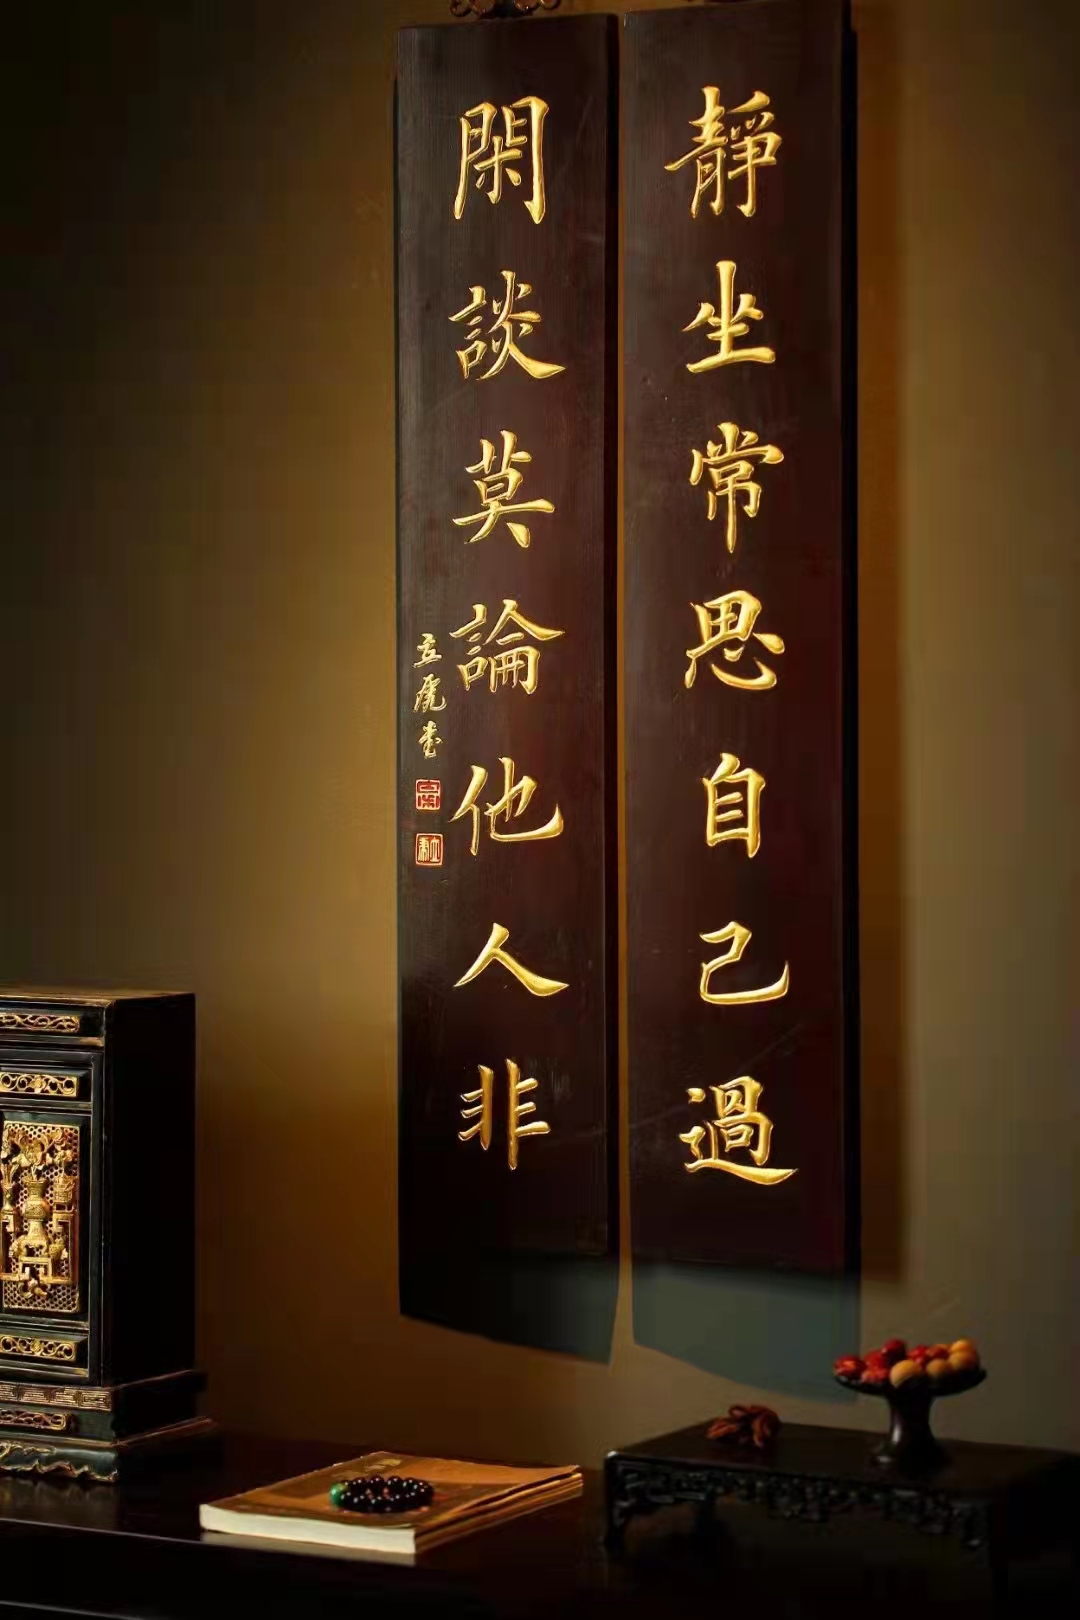 靜坐常思自己過
閑談莫論他人非
立虎書